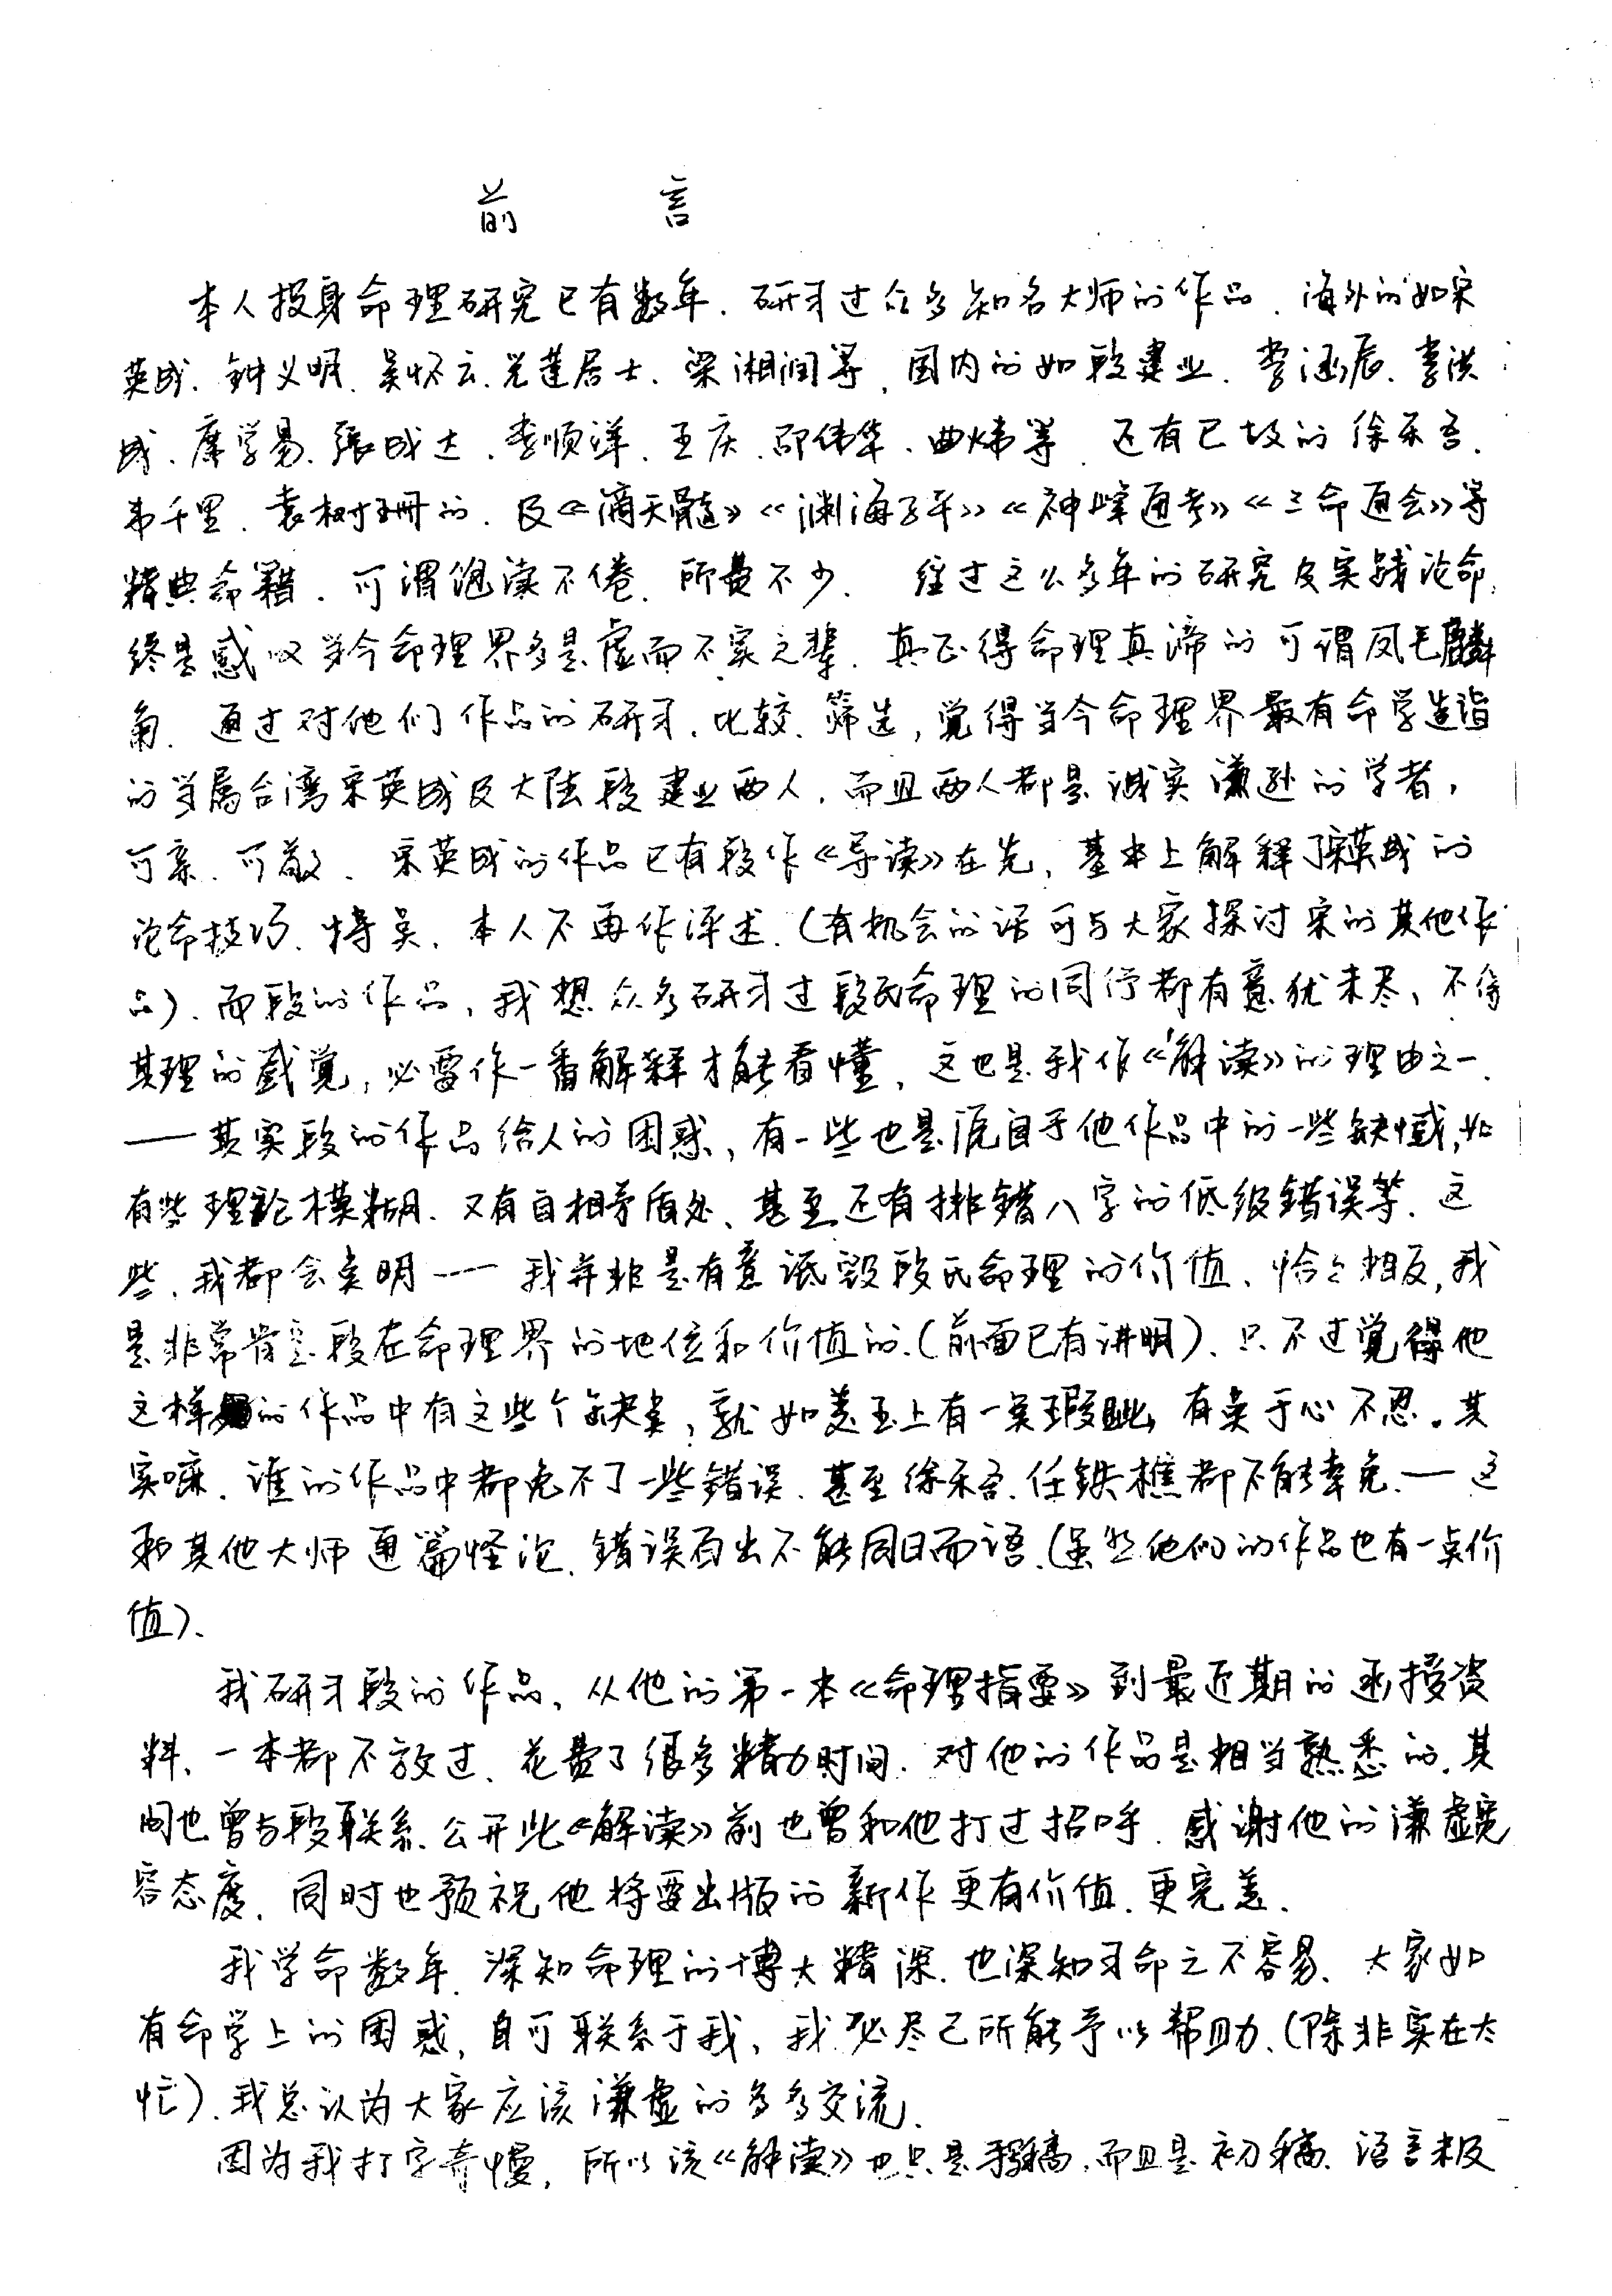 前 言
本人投身命理研究已有数年.研习过众多知名大师的作品.海外的如宋
英成.钟义明.吴怀云.觉莲居士.梁湘润等,国内的如段建业.李涵辰.李洪
成.廖学易.张成达.李顺洋.王庆.邵伟华.曲炜等.还有已故的徐乐吾.
韦千里.袁树珊的.及《滴天髓》《渊海子平》《神峰通考》《三命通会》等
精典命籍.可谓饱读不倦.所费不少. 经过这么多年的研究及实践论命,
终是感叹当今命理界多是虚而不实之辈.真正得命理真谛的可谓凤毛麟
角.通过对他们作品的研习.比较.筛选,觉得当今命理界最有命学造诣
的当属台湾宋英成及大陆段建业两人.而且两人都是诚实谦逊的学者,
可亲.可敬.宋英成的作品已有段作《导读》在先,基本上解释了宋英成的
论命技巧.特点.本人不再作评述.(有机会的话可与大家探讨宋的其他作
品).而段的作品,我想众多研习过段氏命理的同行都有意犹未尽,不得
其理的感觉,必需作一番解释才能看懂,这也是我作《解读》的理由之一.
——其实段的作品给人的困惑,有一些也是源自于他作品中的一些缺憾,如
有些理论模糊.又有自相矛盾处、甚至还有排错八字的低级错误等.这
些.我都会点明——我并非是有意诋毁段氏命理的价值、恰々相反,我
是非常肯定段在命理界的地位和价值的.(前面已有讲明).只不过觉得他
这样的作品中有这些个缺点,就如美玉上有一点瑕疵,有点于心不忍。其
实嘛.谁的作品中都免不了一些错误.甚至徐乐吾.任铁樵都不能幸免.—这
和其他大师通篇怪论.错误百出不能同日而语.(虽然他们的作品也有一点价
值).
我研习段的作品,从他的第一本《命理指要》到最近期的函授资
料、一本都不放过、花费了很多精力时间.对他的作品是相当熟悉的.其
间也曾与段联系.公开此《解读》前也曾和他打过招呼.感谢他的谦虚宽
容态度.同时也预祝他将要出版的新作更有价值.更完美.
我学命数年.深知命理的博大精深.也深知习命之不容易.大家如
有命学上的困惑,自可联系于我,我必尽己所能予以帮助.(除非实在太
忙).我总认为大家应该谦虚的多多交流.
因为我打字奇慢,所以该《解读》也只是手稿.而且是初稿.语言未及